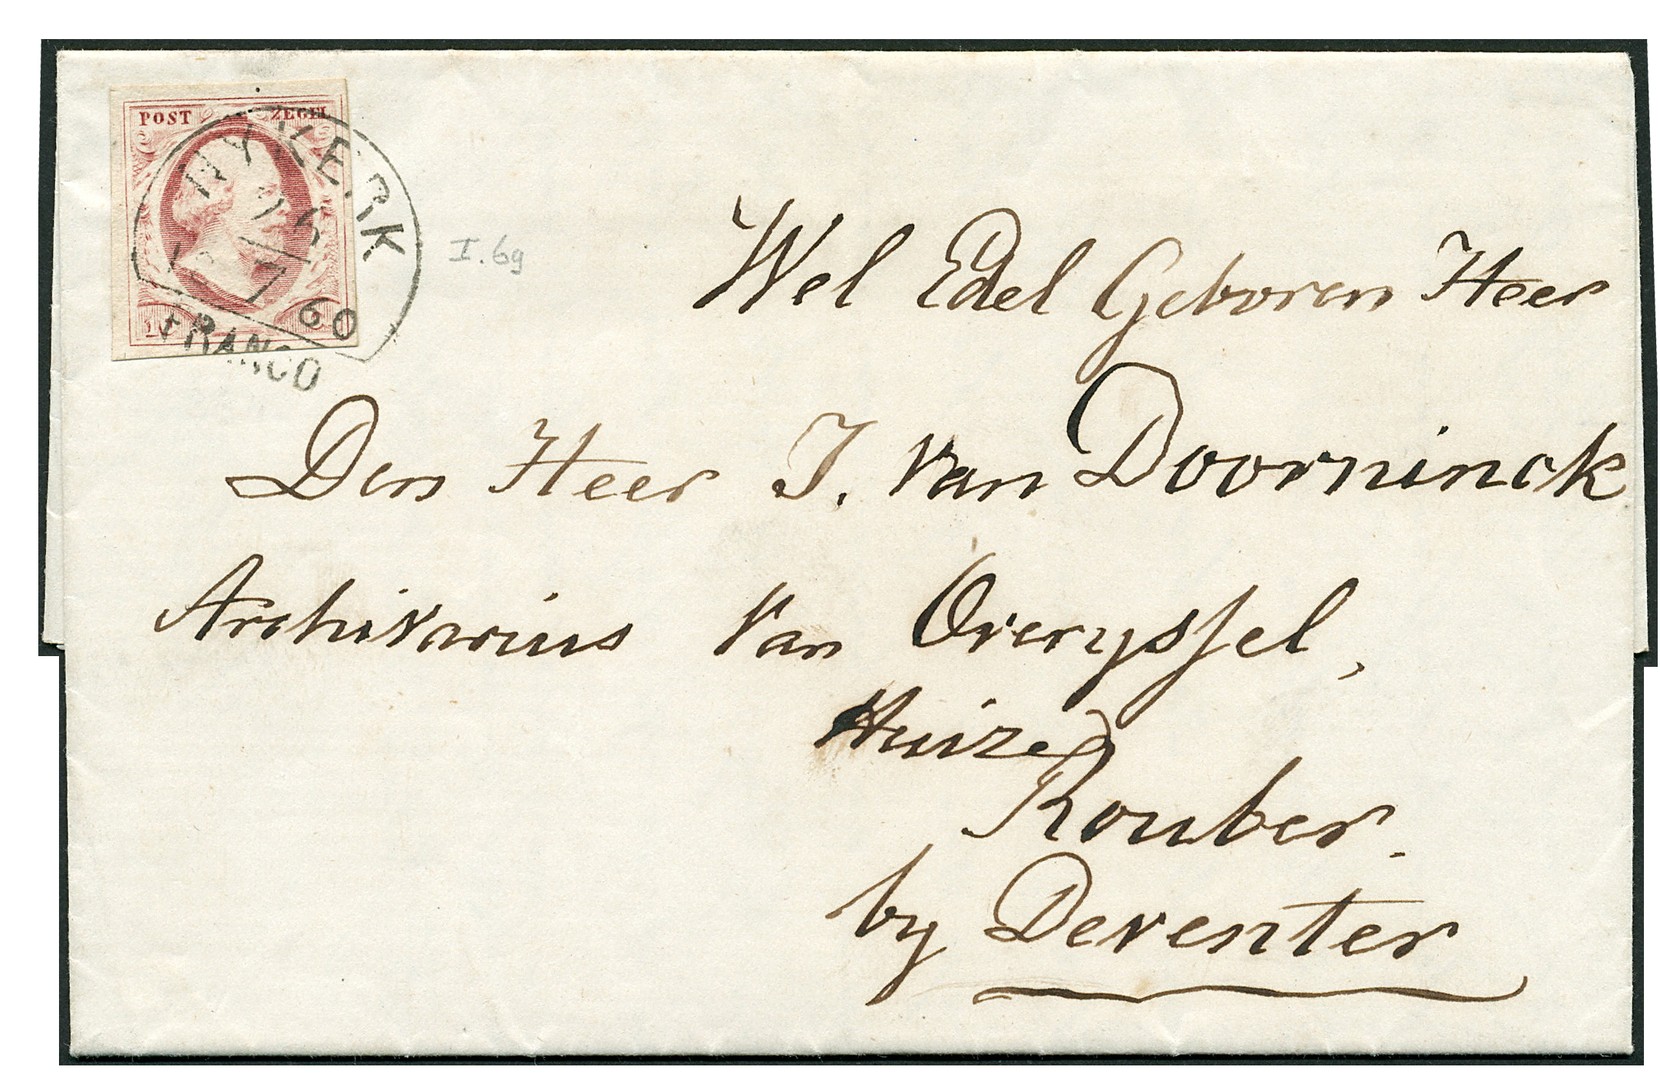 POST ZEGEL
NYKERK
FRANCO
60
I.69
Wel Edel Geboren Heer
Den Heer J. van Doorninck
Archivarius van Overyssel,
Huize
Kouber.
by Deventer